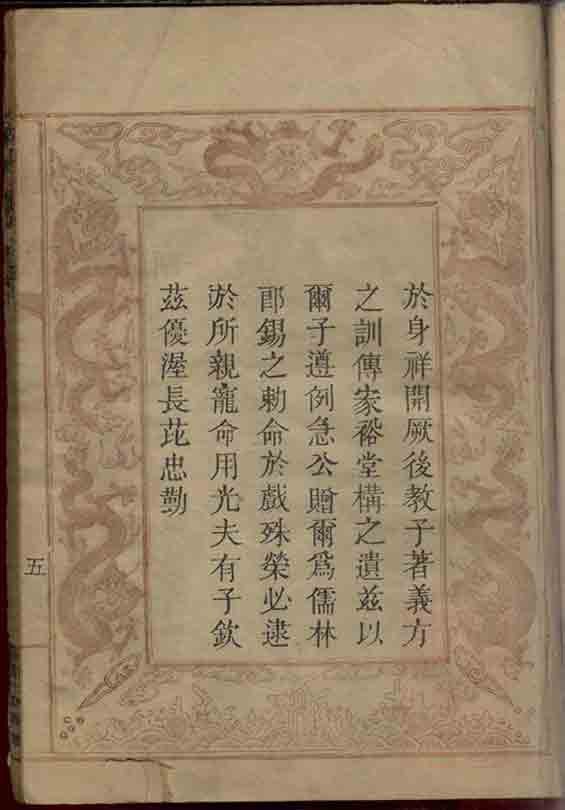 於身祥開厥後教子著義方
之訓傳家裕堂構之遺茲以
爾子遵例急公贈爾爲儒林
郎錫之勅命於戲殊榮必逮
於所親寵命用光夫有子欽
茲優渥長芘忠勤
五